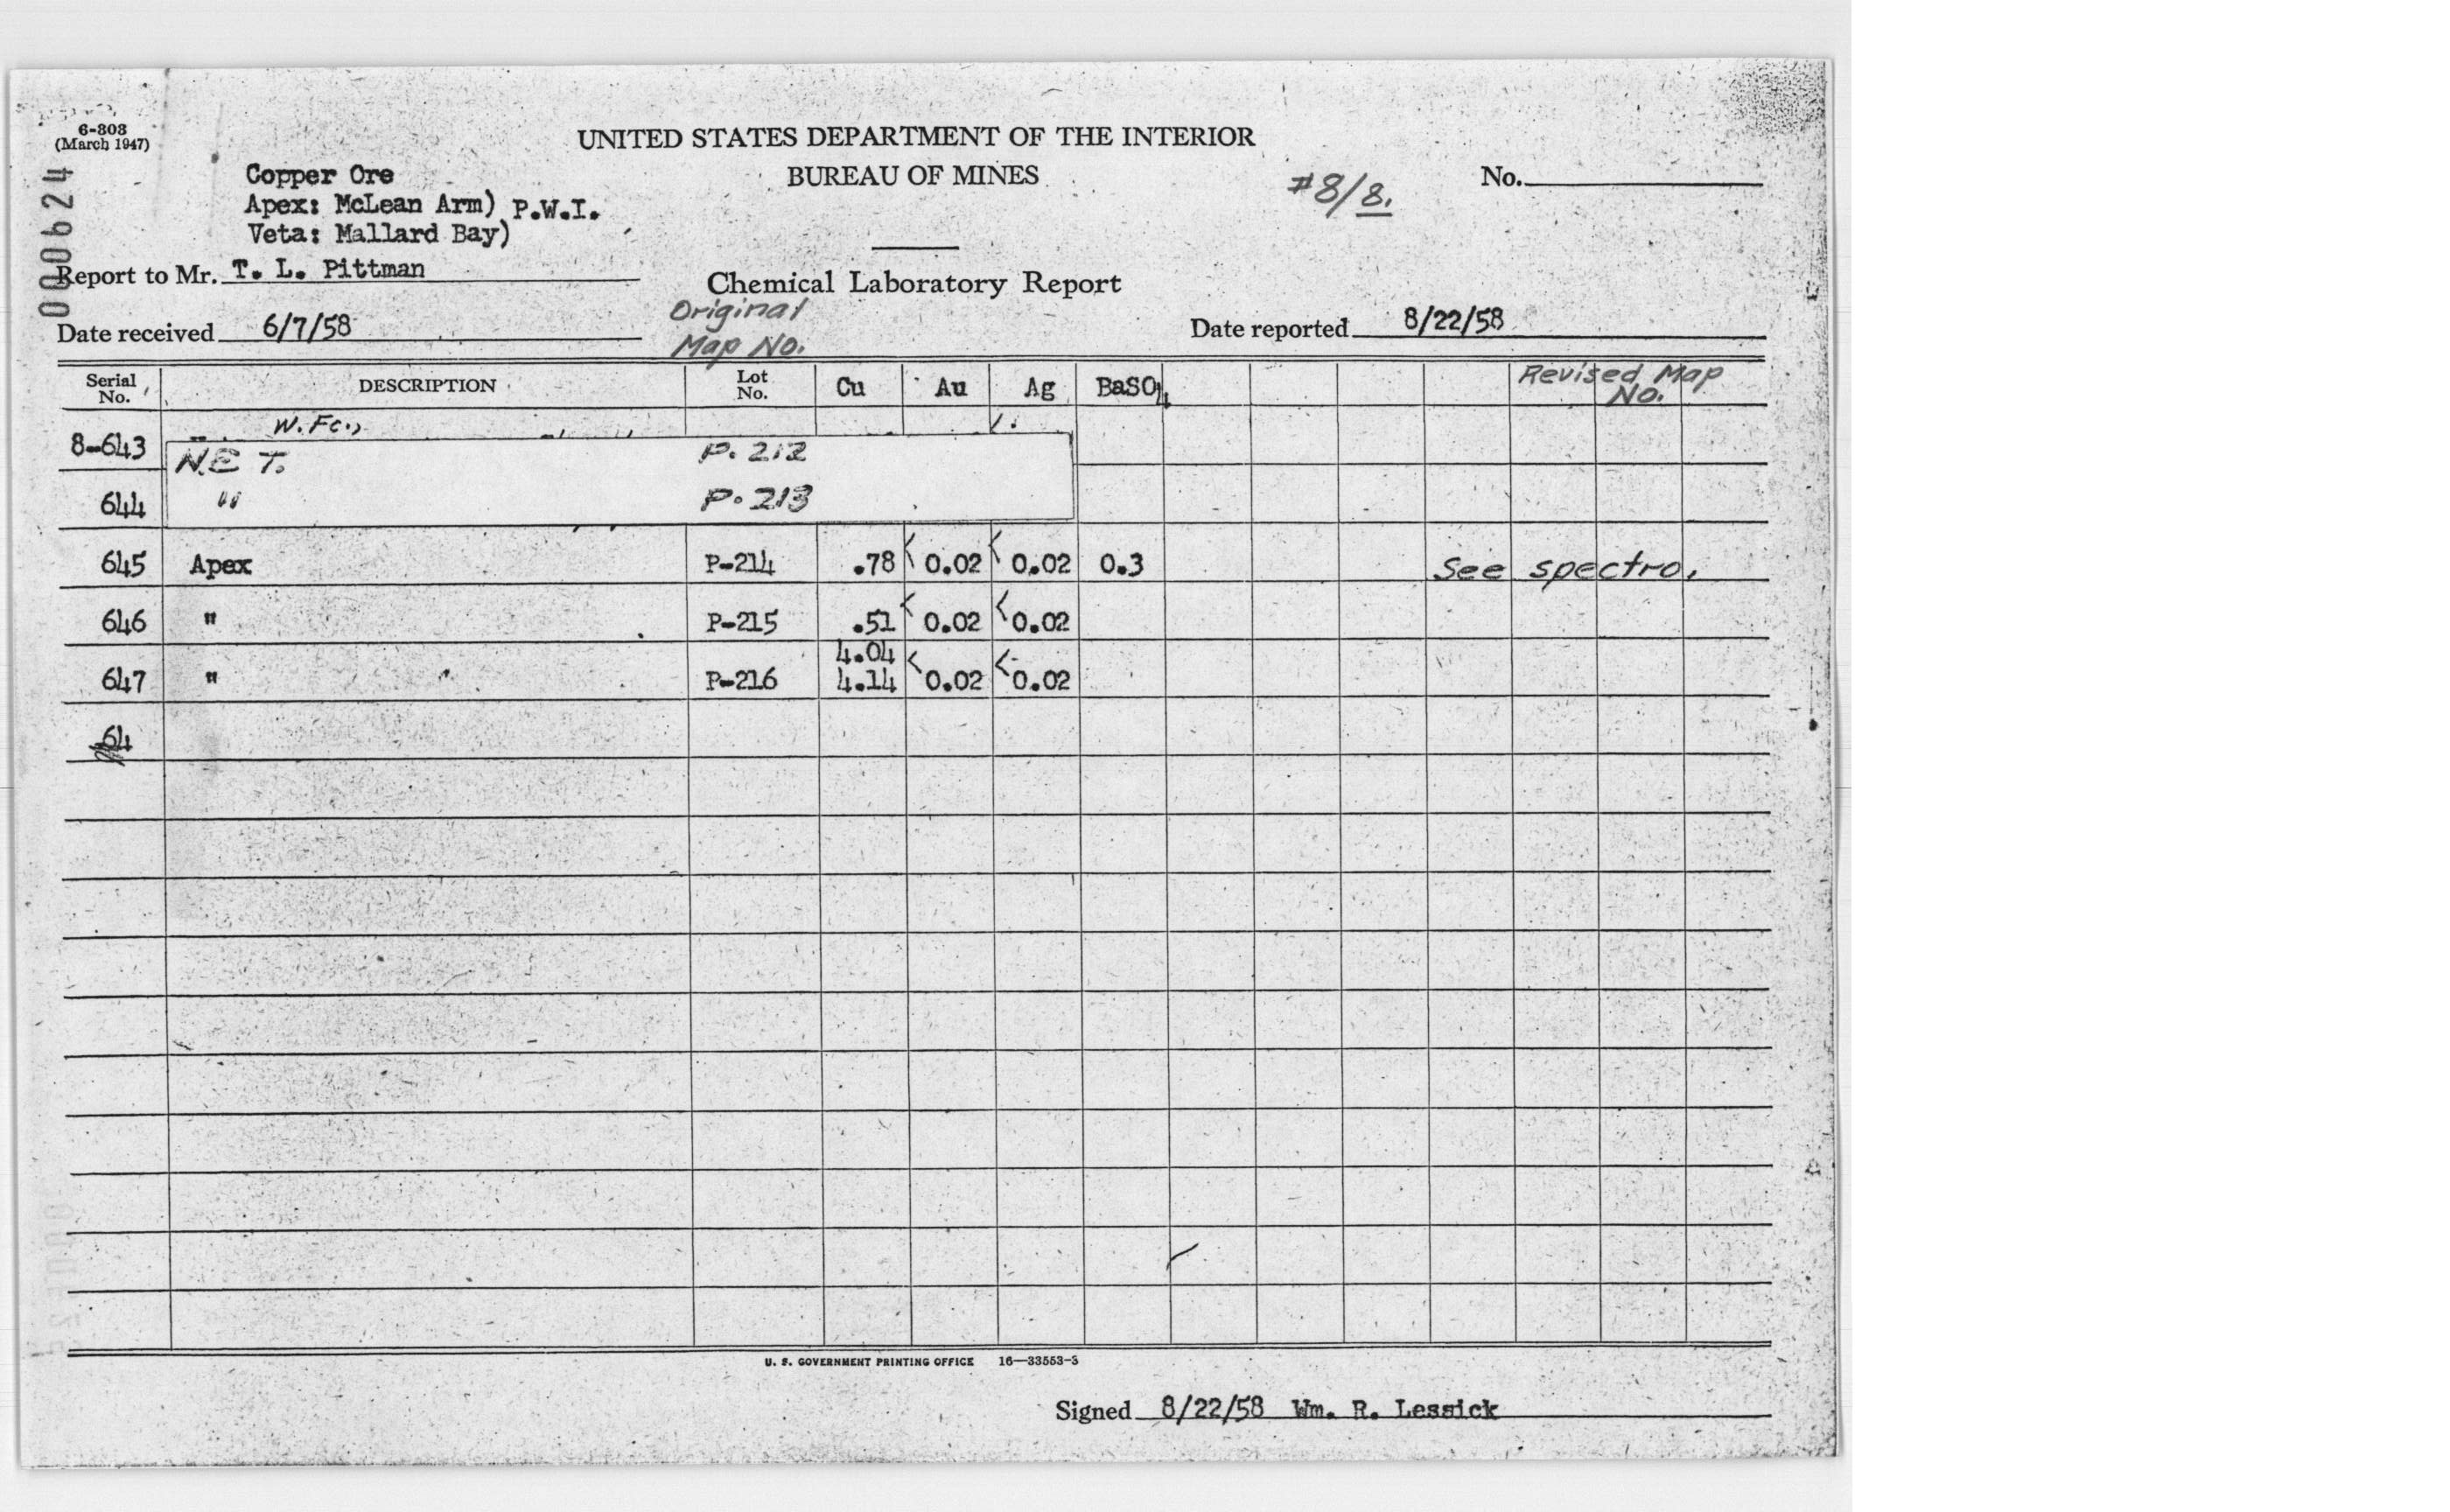 6-303
(March 1947)
000624
UNITED STATES DEPARTMENT OF THE INTERIOR
BUREAU OF MINES
Copper Ore
Apex: McLean Arm) P.W.I.
Veta: Mallard Bay)
#8/8.
No.
Report to Mr. T. L. Pittman
Chemical Laboratory Report
Original
Map No.
Date received 6/7/58
Date reported 8/22/58
Serial No. DESCRIPTION Lot No. Cu Au Ag BaSO4 Revised Map No.
W. Fc.,
8-643 N.E T. P. 212
644 " P. 213
645 Apex P-214 .78 <0.02 <0.02 0.3 See spectro.
646 " P-215 .51 <0.02 <0.02
4.04
647 " P-216 4.14 <0.02 <0.02
64
U. S. GOVERNMENT PRINTING OFFICE 16—33553-3
Signed 8/22/58 Wm. R. Lessick